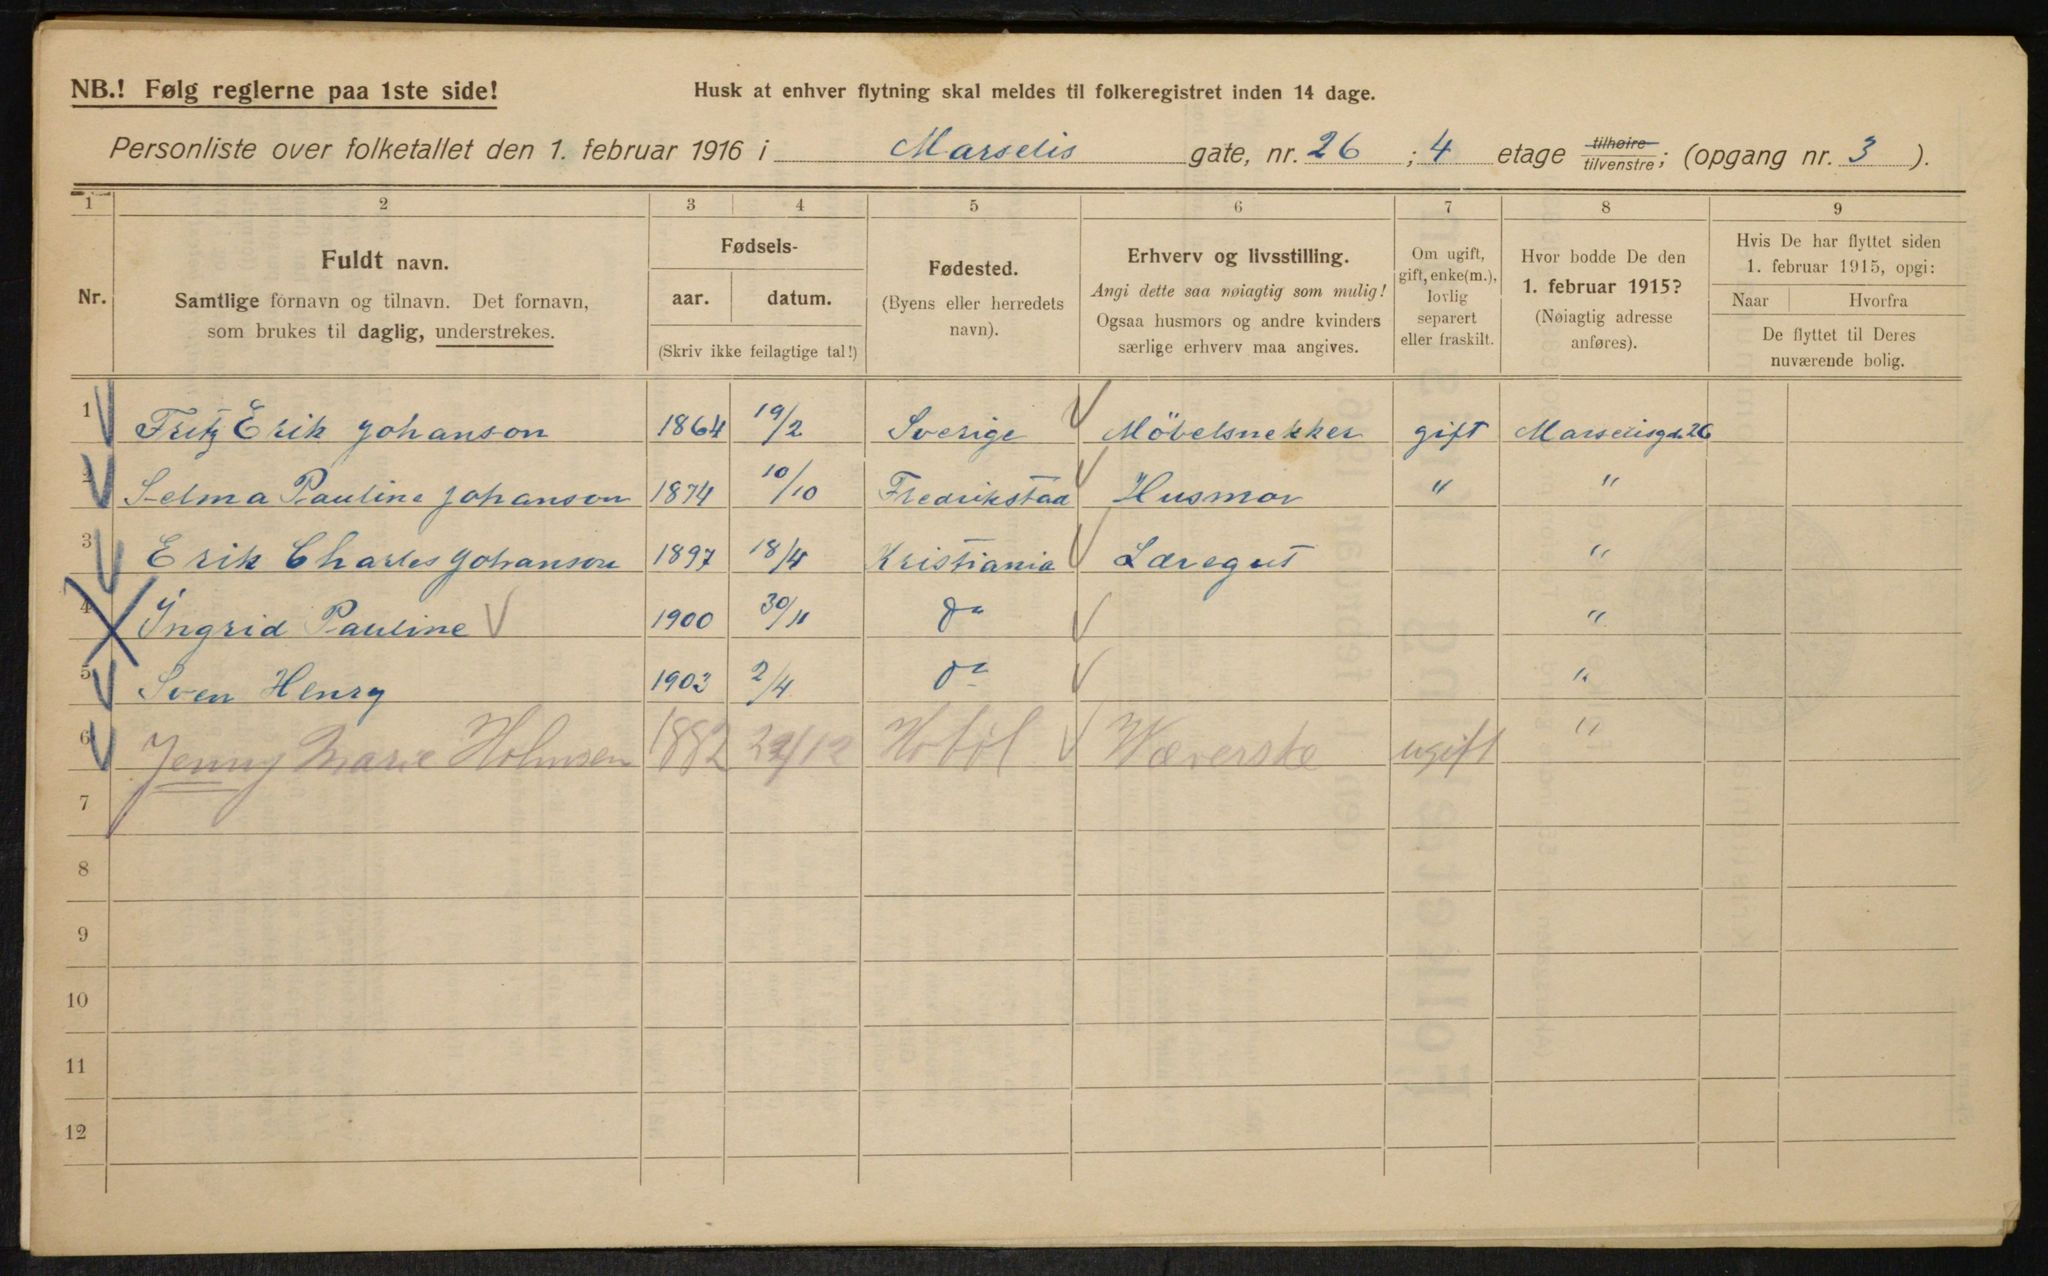 NB.! Følg reglerne paa 1ste side!
Husk at enhver flytning skal meldes til folkeregistret inden 14 dage.
Personliste over folketallet den 1. februar 1916 i Marselis gate, nr. 26 ; 4 etage tilhøire/tilvenstre; (opgang nr. 3 ).
1 2 3 4 5 6 7 8 9
Nr.
Fuldt navn.
Samtlige fornavn og tilnavn. Det fornavn,
som brukes til daglig, understrekes.
Fødsels-
aar. datum.
(Skriv ikke feilagtige tal!)
Fødested.
(Byens eller herredets
navn).
Erhverv og livsstilling.
Angi dette saa nøiagtig som mulig!
Ogsaa husmors og andre kvinders
særlige erhverv maa angives.
Om ugift,
gift, enke(m.),
lovlig
separert
eller fraskilt.
Hvor bodde De den
1. februar 1915?
(Nøiagtig adresse
anføres).
Hvis De har flyttet siden
1. februar 1915, opgi:
Naar Hvorfra
De flyttet til Deres
nuværende bolig.
1 Fritz Erik Johanson 1864 19/2 Sverige Möbelsnekker gift Marselisgd. 26
2 Selma Pauline Johanson 1874 10/10 Fredrikstad Husmor " "
3 Erik Charles Johanson 1897 18/4 Kristiania Læregut "
4 Ingrid Pauline 1900 30/11 do "
5 Sven Henry 1903 2/4 do "
6 Jenny Marie Holmsen 1882 /12 Hobøl Væverske ugift "
7
8
9
10
11
12